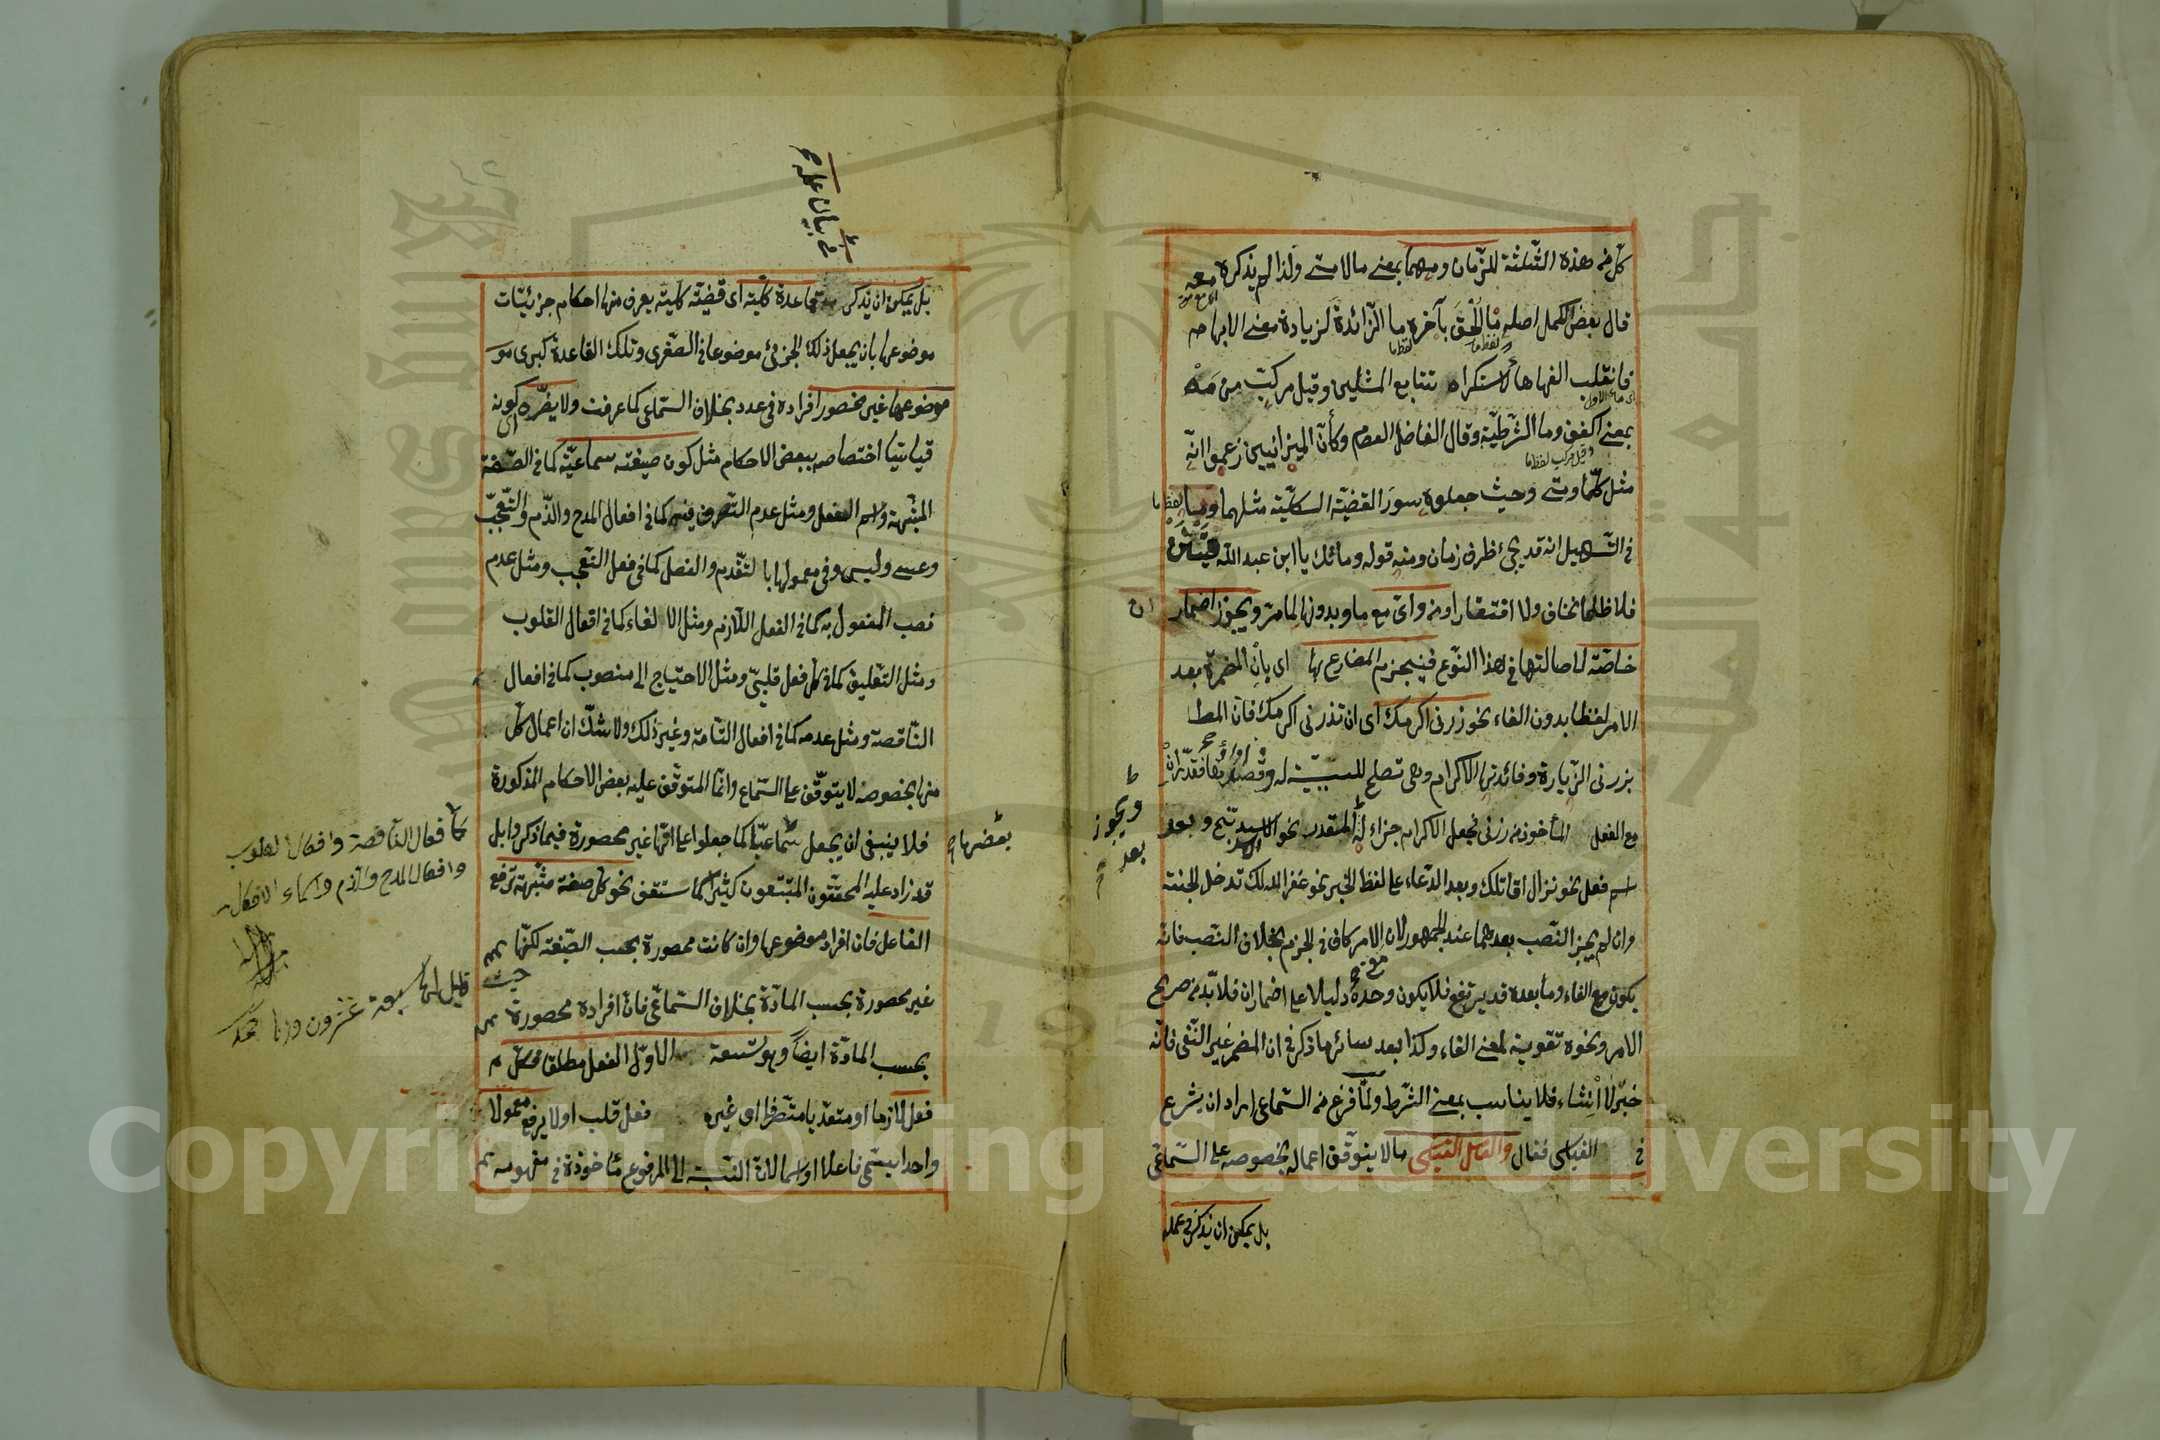 كل من هذه الثلثة للزمان ومهما بمعنى ما لا متى ولذا لم يذكره معه
قال بعض الكمل اصله ما الحق بآخره ما الزائدة لزيادة معنى الابهام
فانقلب الفها هاء لاستكراه تتابع المثلين وقيل مركب من مه
بمعنى اكفف وما الشرطية وقال الفاضل العصام وكأن الميزانيين زعموا انه
مثل كلما ومتى وحيث جعلوه سور القضية الكلية مثلهما
في التسهيل انه قد يجئ ظرف زمان ومنه قوله وما تك يا ابن عبد الله فينا
فلا ظلما نخاف ولا افتقارا ومن واى مع ما وبدونها لما مر ويجوز اضمار ان
خاصة لاصالتها في هذا النوع فينجزم المضارع بها اى بان المضمرة بعد
الامر لفظا بدون الفاء نحو زرني اكرمك اى ان تزرني اكرمك فان المط
بزرني الزيارة وفائدتها الاكرام وهي تصلح للسببية له
مع الفعل المأخوذ من زرني فجعل الاكرام جزاء
اسم فعل نحو نزال اقاتلك وبعد الدعاء على لفظ الخبر نحو غفر الله لك تدخل الجنة
وان لم يجز النصب بعدهما عند الجمهور لان الامر كاف في الجزم بخلاف النصب فانه
يكون مع الفاء وما بعده قد يرتفع فلا يكون وحده دليلا على اضمار ان فلا بد من صريح
الامر ونحوه تقوية لمعنى الفاء وكذا بعد سائر ما ذكر في ان المضمر غير النفي فانه
خبر لا انشاء فلا يناسب بمعنى الشرط ولما فرغ من السماعى اراد ان يشرع
في القياسى فقال والعامل القياسى ما لا يتوقف اعماله بخصوصه على السماعى
بل يمكن ان يذكر في عمله
ويجوز
بعد
في بيان عمله
بل يمكن ان يذكر قاعدة كلية اى قضية كلية يعرف منها احكام جزئيات
موضوعها بان يجعل ذلك الجزئى موضوعا في الصغرى وتلك القاعدة كبرى
موضوعها غير محصور افراده في عدد بخلاف السماعى كما عرفت ولا يضره كونه
قياسيا اختصاصه ببعض الاحكام مثل كون صيغته سماعية كما في الصفة
المشبهة واسم الفعل ومثل عدم التصرف فيه كما في افعال المدح والذم والتعجب
وعسى وليس وفى معمولها بالتقدم والفصل كما في فعل التعجب ومثل عدم
نصب المفعول به كما في الفعل اللازم ومثل الالغاء كما في افعال القلوب
ومثل التعليق كما في كل فعل قلبى ومثل الاحتياج الى منصوب كما في افعال
الناقصة ومثل عدمه كما في افعال التامة وغير ذلك ولا شك ان اعمال كل
منها بخصوصه لا يتوقف على السماع وانما المتوقف عليه بعض الاحكام المذكورة
فلا ينبغى ان يجعل بعضها سماعيا كما جعلوا على انها غير محصورة فيما ذكروا بل
قد زاد عليه المحققون المتتبعون كثيرا كما ستقف نحو كل صفة مشبهة ترفع
الفاعل فان افراد موضوعها وان كانت محصورة بحسب الصيغة لكنها
غير محصورة بحسب المادة بخلاف السماعى فان افراده محصورة
بحسب المادة ايضا وهو تسعة الاول الفعل مطلقا فكل
فعل لازما او متعديا متصرفا او غيره فعل قلب او لا يرفع معمولا
واحدا يسمى فاعلا او اسما لان النسبة الى المرفوع مأخوذة في مفهومه
كافعال الناقصة وافعال القلوب
وافعال المدح والذم واسماء الافعال
Copyright © King Saud University